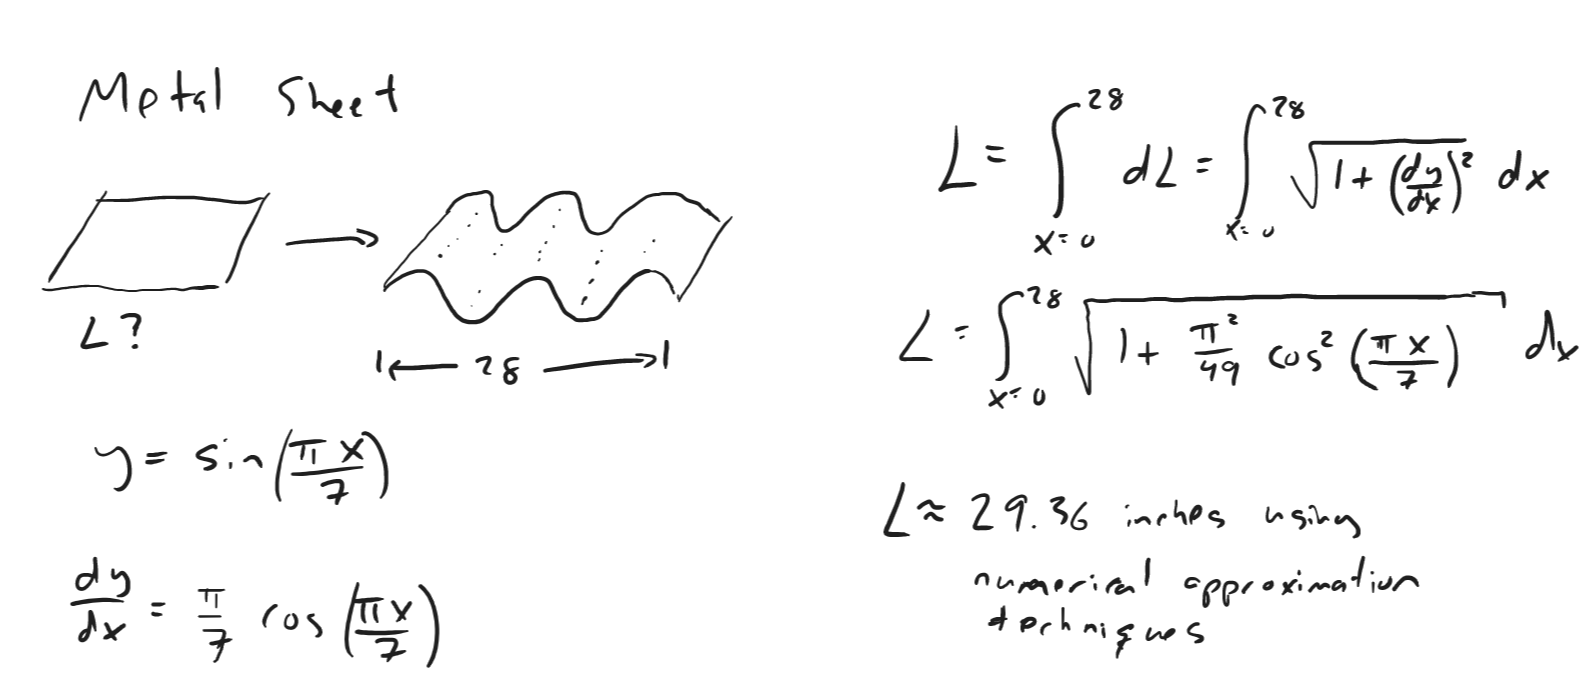 Metal Sheet
L?
28
y = sin(πx/7)
dy/dx = π/7 cos(πx/7)
L = ∫_{x=0}^{28} dL = ∫_{x=0}^{28} √(1 + (dy/dx)²) dx
L = ∫_{x=0}^{28} √(1 + π²/49 cos²(πx/7)) dx
L ≈ 29.36 inches using
numerical approximation
techniques